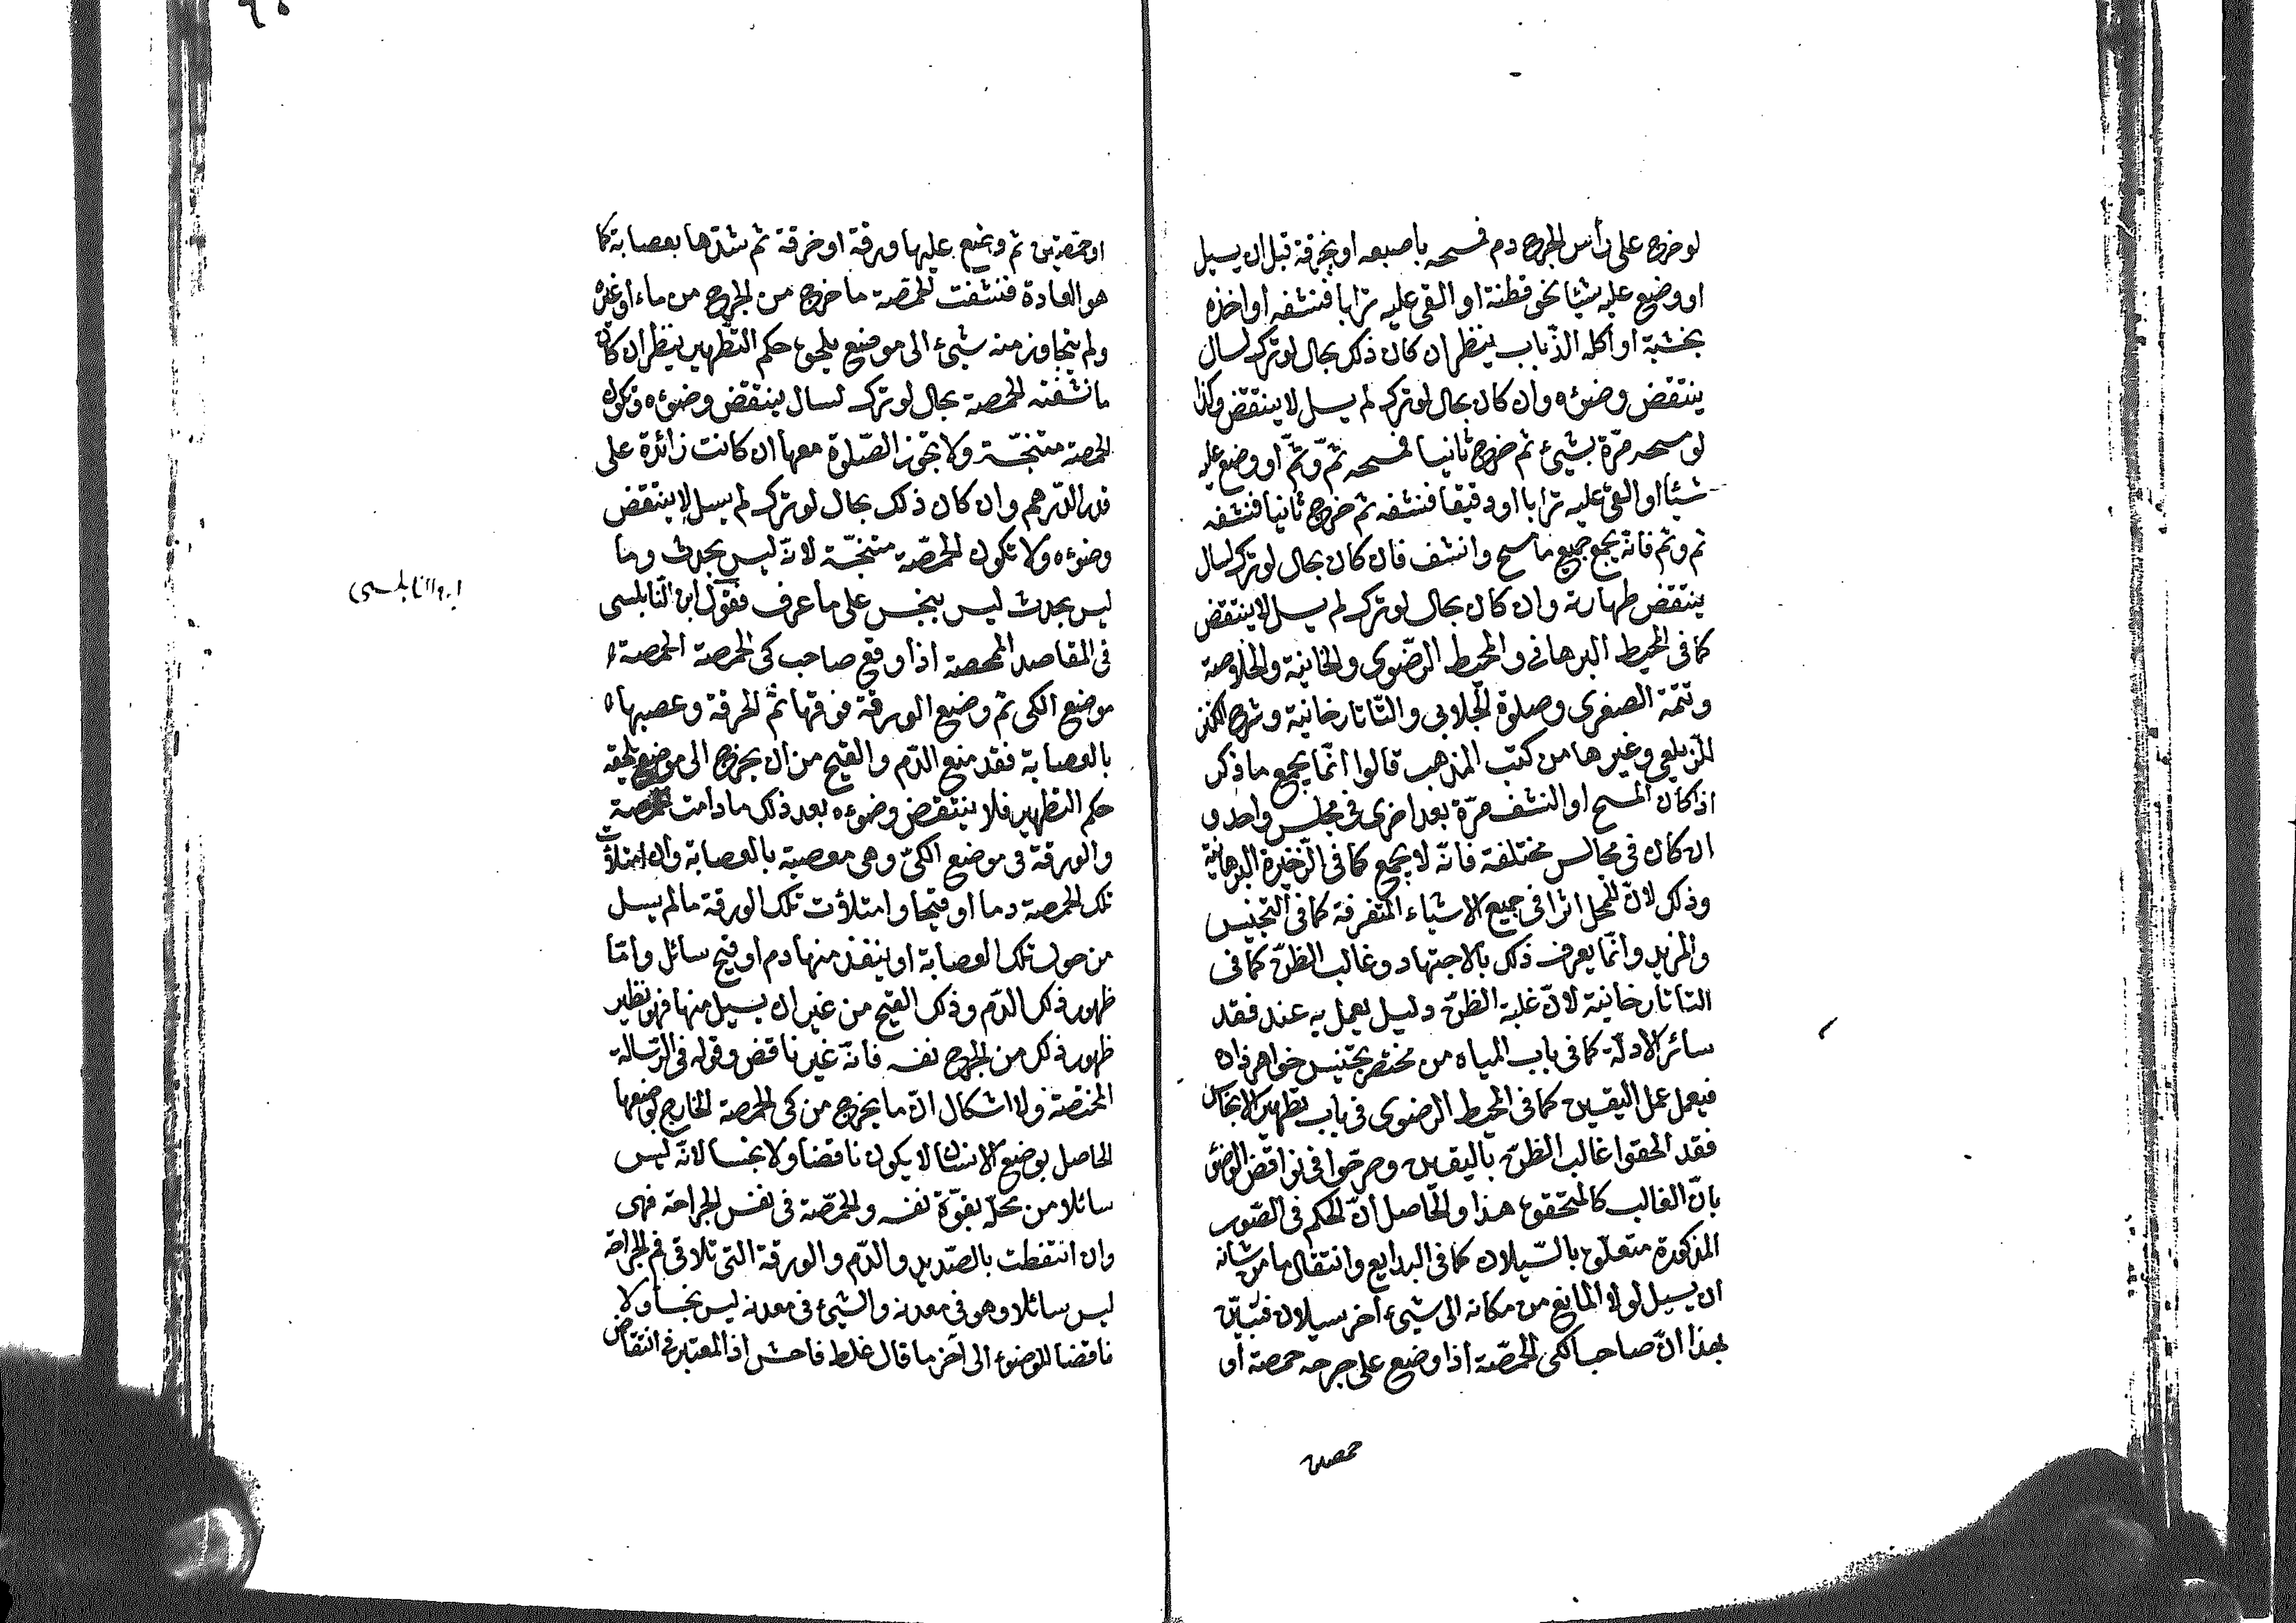 لو خرج على رأس الجرح دم فمسحه باصبعه او بخرقة قبل ان يسيل
او وضع عليه شيئا نحو قطنة او القى عليه ترابا فنشفه او اخذه
بخشبة او اكله الذّباب ينظر ان كان ذلك بحال لو تركه لسال
ينتقض وضوءه وان كان بحال لو تركه لم يسل لا ينتقض وكذا
لو مسحه مرّة بشيئ ثم خرج ثانيا فمسحه ثمّ وثمّ او وضع عليه
شيئا او القى عليه ترابا او دقيقا فنشفه ثم خرج ثانيا فنشفه
ثم وثم فانّه يجمع جميع ما مسح وانشف فان كان بحال لو تركه لسال
ينتقض طهارته وان كان بحال لو تركه لم يسل لا ينتقض
كما فى المحيط البرهانى والمحيط الرّضوى والخانية والخلاصة
وتتمّة الصغرى وصلوة الجلابى والتّاتارخانية وشرح الكنز
للزيلعى وغيرها من كتب المذهب قالوا انّما يجمع ما ذكر
اذا كان المسح او النشف مرّة بعد اخرى فى مجلس واحد و
ان كان فى مجالس مختلفة فانّه لا يجمع كما فى الذّخيرة البرهانية
وذلك لانّ للمحل اثرا فى جميع الاشياء المتفرقة كما فى التجنيس
والمزيد وانّما يعرف ذلك بالاجتهاد وغالب الظنّ كما فى
التاتارخانية لانّ غلبة الظنّ دليل يعمل به عند فقد
سائر الادلّة كما فى باب المياه من مختصر تجنيس خواهر زاده
فيعمل عمل اليقين كما فى المحيط الرضوى فى باب تطهير الانجاس
فقد الحقوا غالب الظنّ باليقين وصرّحوا فى نواقض الوضوء
بانّ الغالب كالمتحقق هذا والحاصل انّ الحكم فى الصّور
المذكورة متعلّق بالسّيلان كما فى البدايع وانتقال ما من شانه
ان يسيل لولا المانع من مكانه الى شيئ اخر سيلان فتبيّن
بهذا انّ صاحب الكى الحمّصة اذا وضع على جرحه حمصة او
حمصتين
او حمّصتين ثم وضع عليها ورقة او خرقة ثم شدّها بعصابة كما
هو العادة فنشفت الحمّصة ما خرج من الجرح من ماء او غيره
ولم يتجاوز منه شيئ الى موضع يلحق حكم التّطهير ينظر ان كان
ما نشفته الحمصة بحال لو تركه لسال ينتقض وضوءه وتكون
الحمصة متنجّسة ولا تجوز الصّلوة معها ان كانت زائدة على
قدر الدّرهم وان كان ذلك بحال لو تركه لم يسل لا ينتقض
وضوءه ولا تكون الحمّصة متنجّسة لانّه ليس بحدث وما
ليس بحدث ليس بنجس على ما عرف فقول ابن النّابلسى
ابن النابلسى
فى المقاصد الممحصة اذا وقع صاحب كى الحمصة الحمصة
موضع الكى ثم وضع الورقة فوقها ثم الخرقة وعصبها
بالعصابة فقد منع الدّم والقيح من ان يخرج الى موضع يلحقه
حكم التطهير فلا ينتقض وضوءه بعد ذلك ما دامت الحمصة
والورقة فى موضع الكىّ وهى معصبة بالعصابة وان امتلأت
تلك الحمصة دما او قيحا وامتلأت تلك الورقة ما لم يسل
من حول تلك العصابة او ينفذ منها دم او قيح سائل وامّا
ظهور ذلك الدّم وذلك القيح من غير ان يسيل منها فهو نظير
ظهور ذلك من الجرح نفسه فانّه غير ناقض وقوله فى الرّسالة
المختصة ولا اشكال انّ ما يخرج من كى الحمّصة الخارج بوضعها
الحاصل بوضع الانسان لا يكون ناقضا ولا نجسا لانّه ليس
سائلا من محلّه بقوّة نفسه والحمّصة فى نفس الجراحة فهى
وان انتفطت بالصّديد والدّم والورقة التى تلاقى فم الجراحة
ليس سائلا وهو فى معدنه والشيئ فى معدنه ليس نجسا ولا
ناقضا للوضوء الى آخر ما قال غلط فاحش اذ المعتبر فى انتقاض